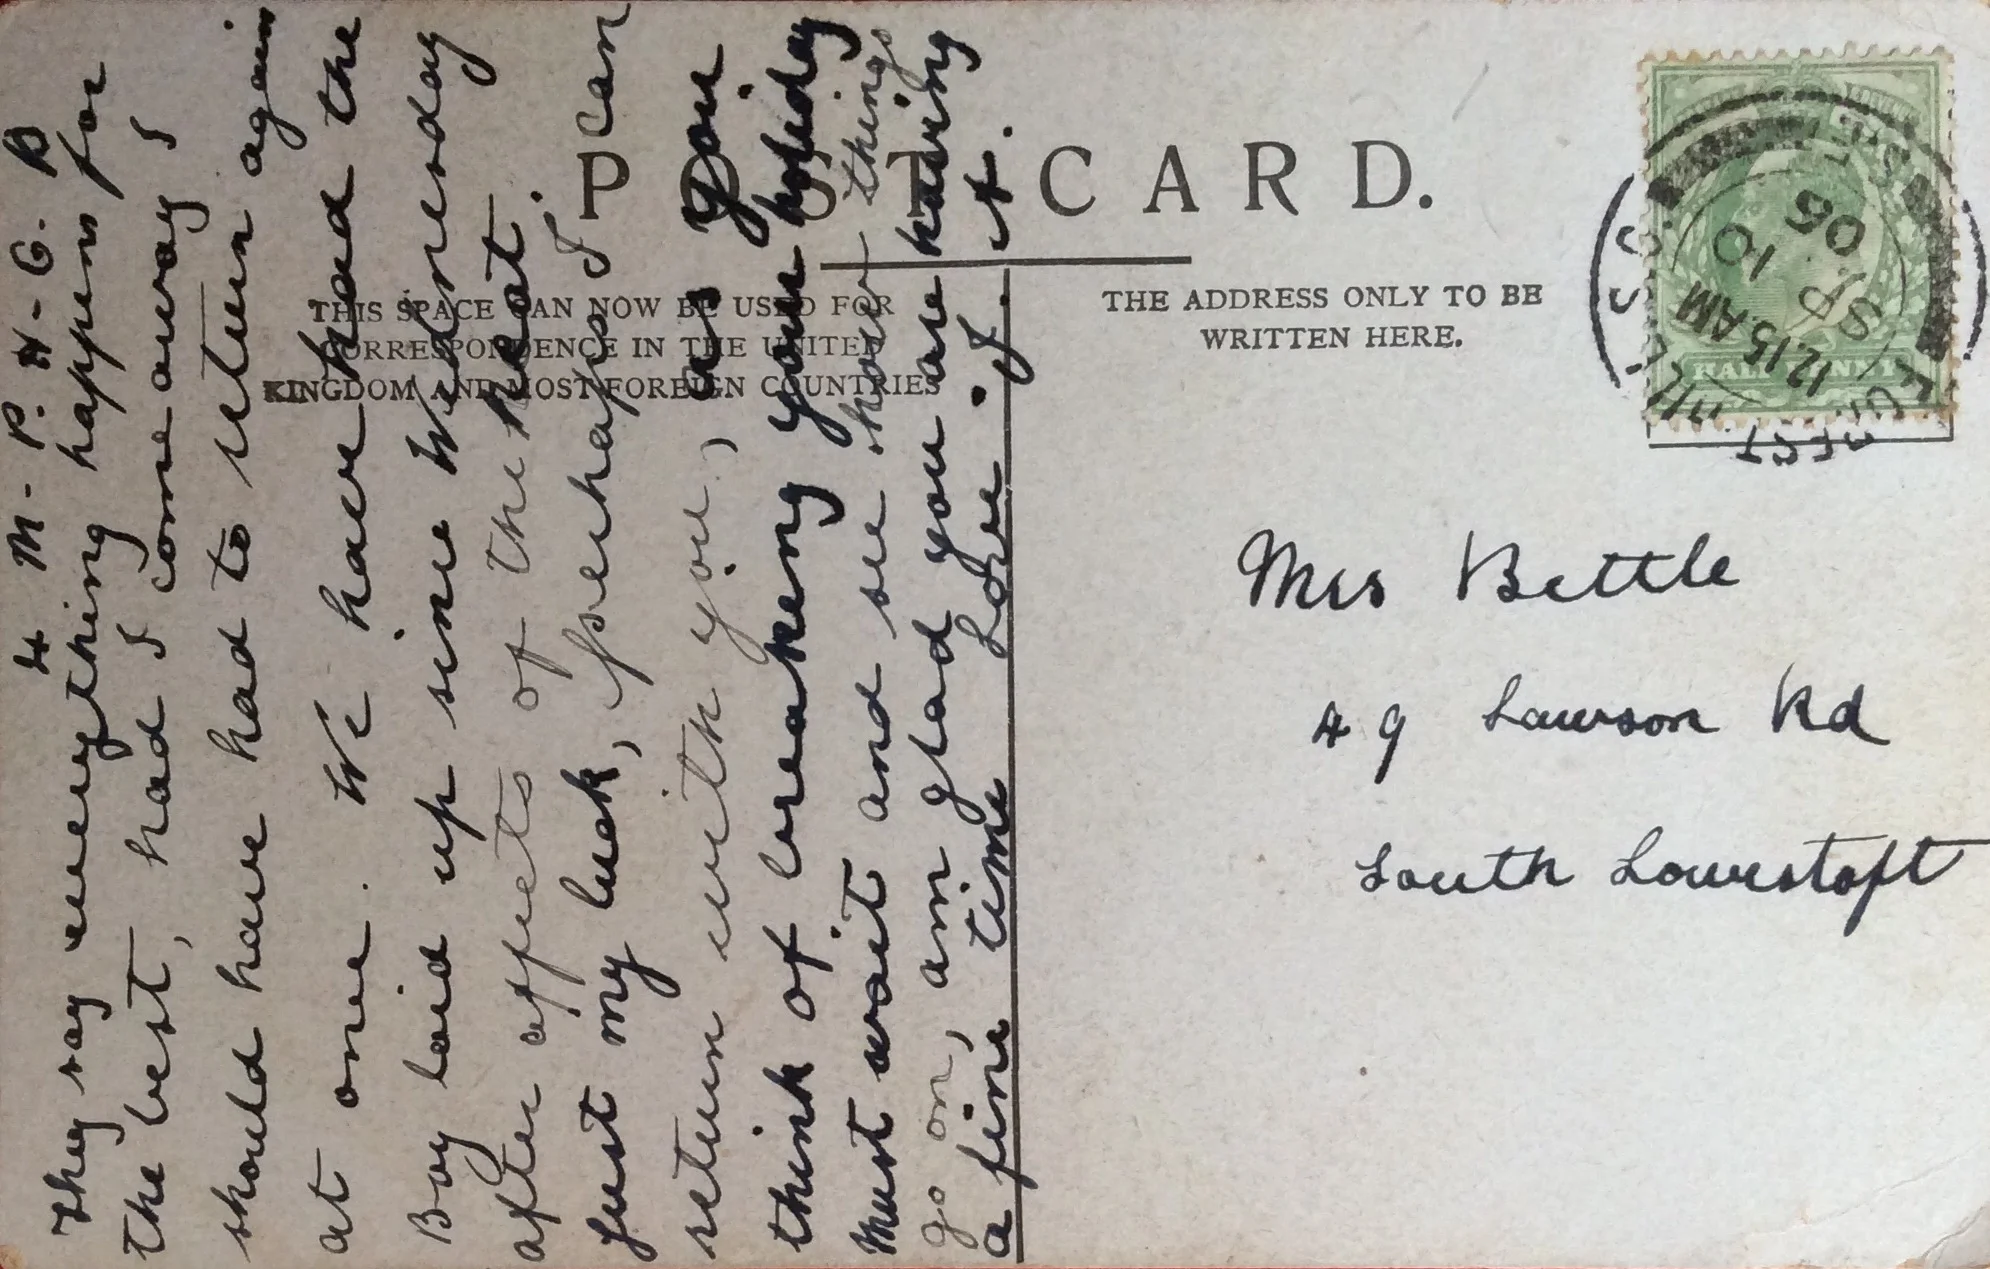 4 M-P. H-G. B
They say everything happens for
the best, had I come away I
should have had to return again
at one. We have had the
Boy laid up since Wednesday
after affects of the heat.
Just my luck, perhaps I can
return with you, as you
think of breaking your holiday
Must wait and see how things
go on, am glad you are having
a fine time Love . J. A.
POST CARD.
THIS SPACE CAN NOW BE USED FOR
CORRESPONDENCE IN THE UNITED
KINGDOM AND MOST FOREIGN COUNTRIES
THE ADDRESS ONLY TO BE
WRITTEN HERE.
HALFPENNY
12.15 AM
SP 10
06
Mrs Bettle
49 Lawson Rd
South Lowestoft